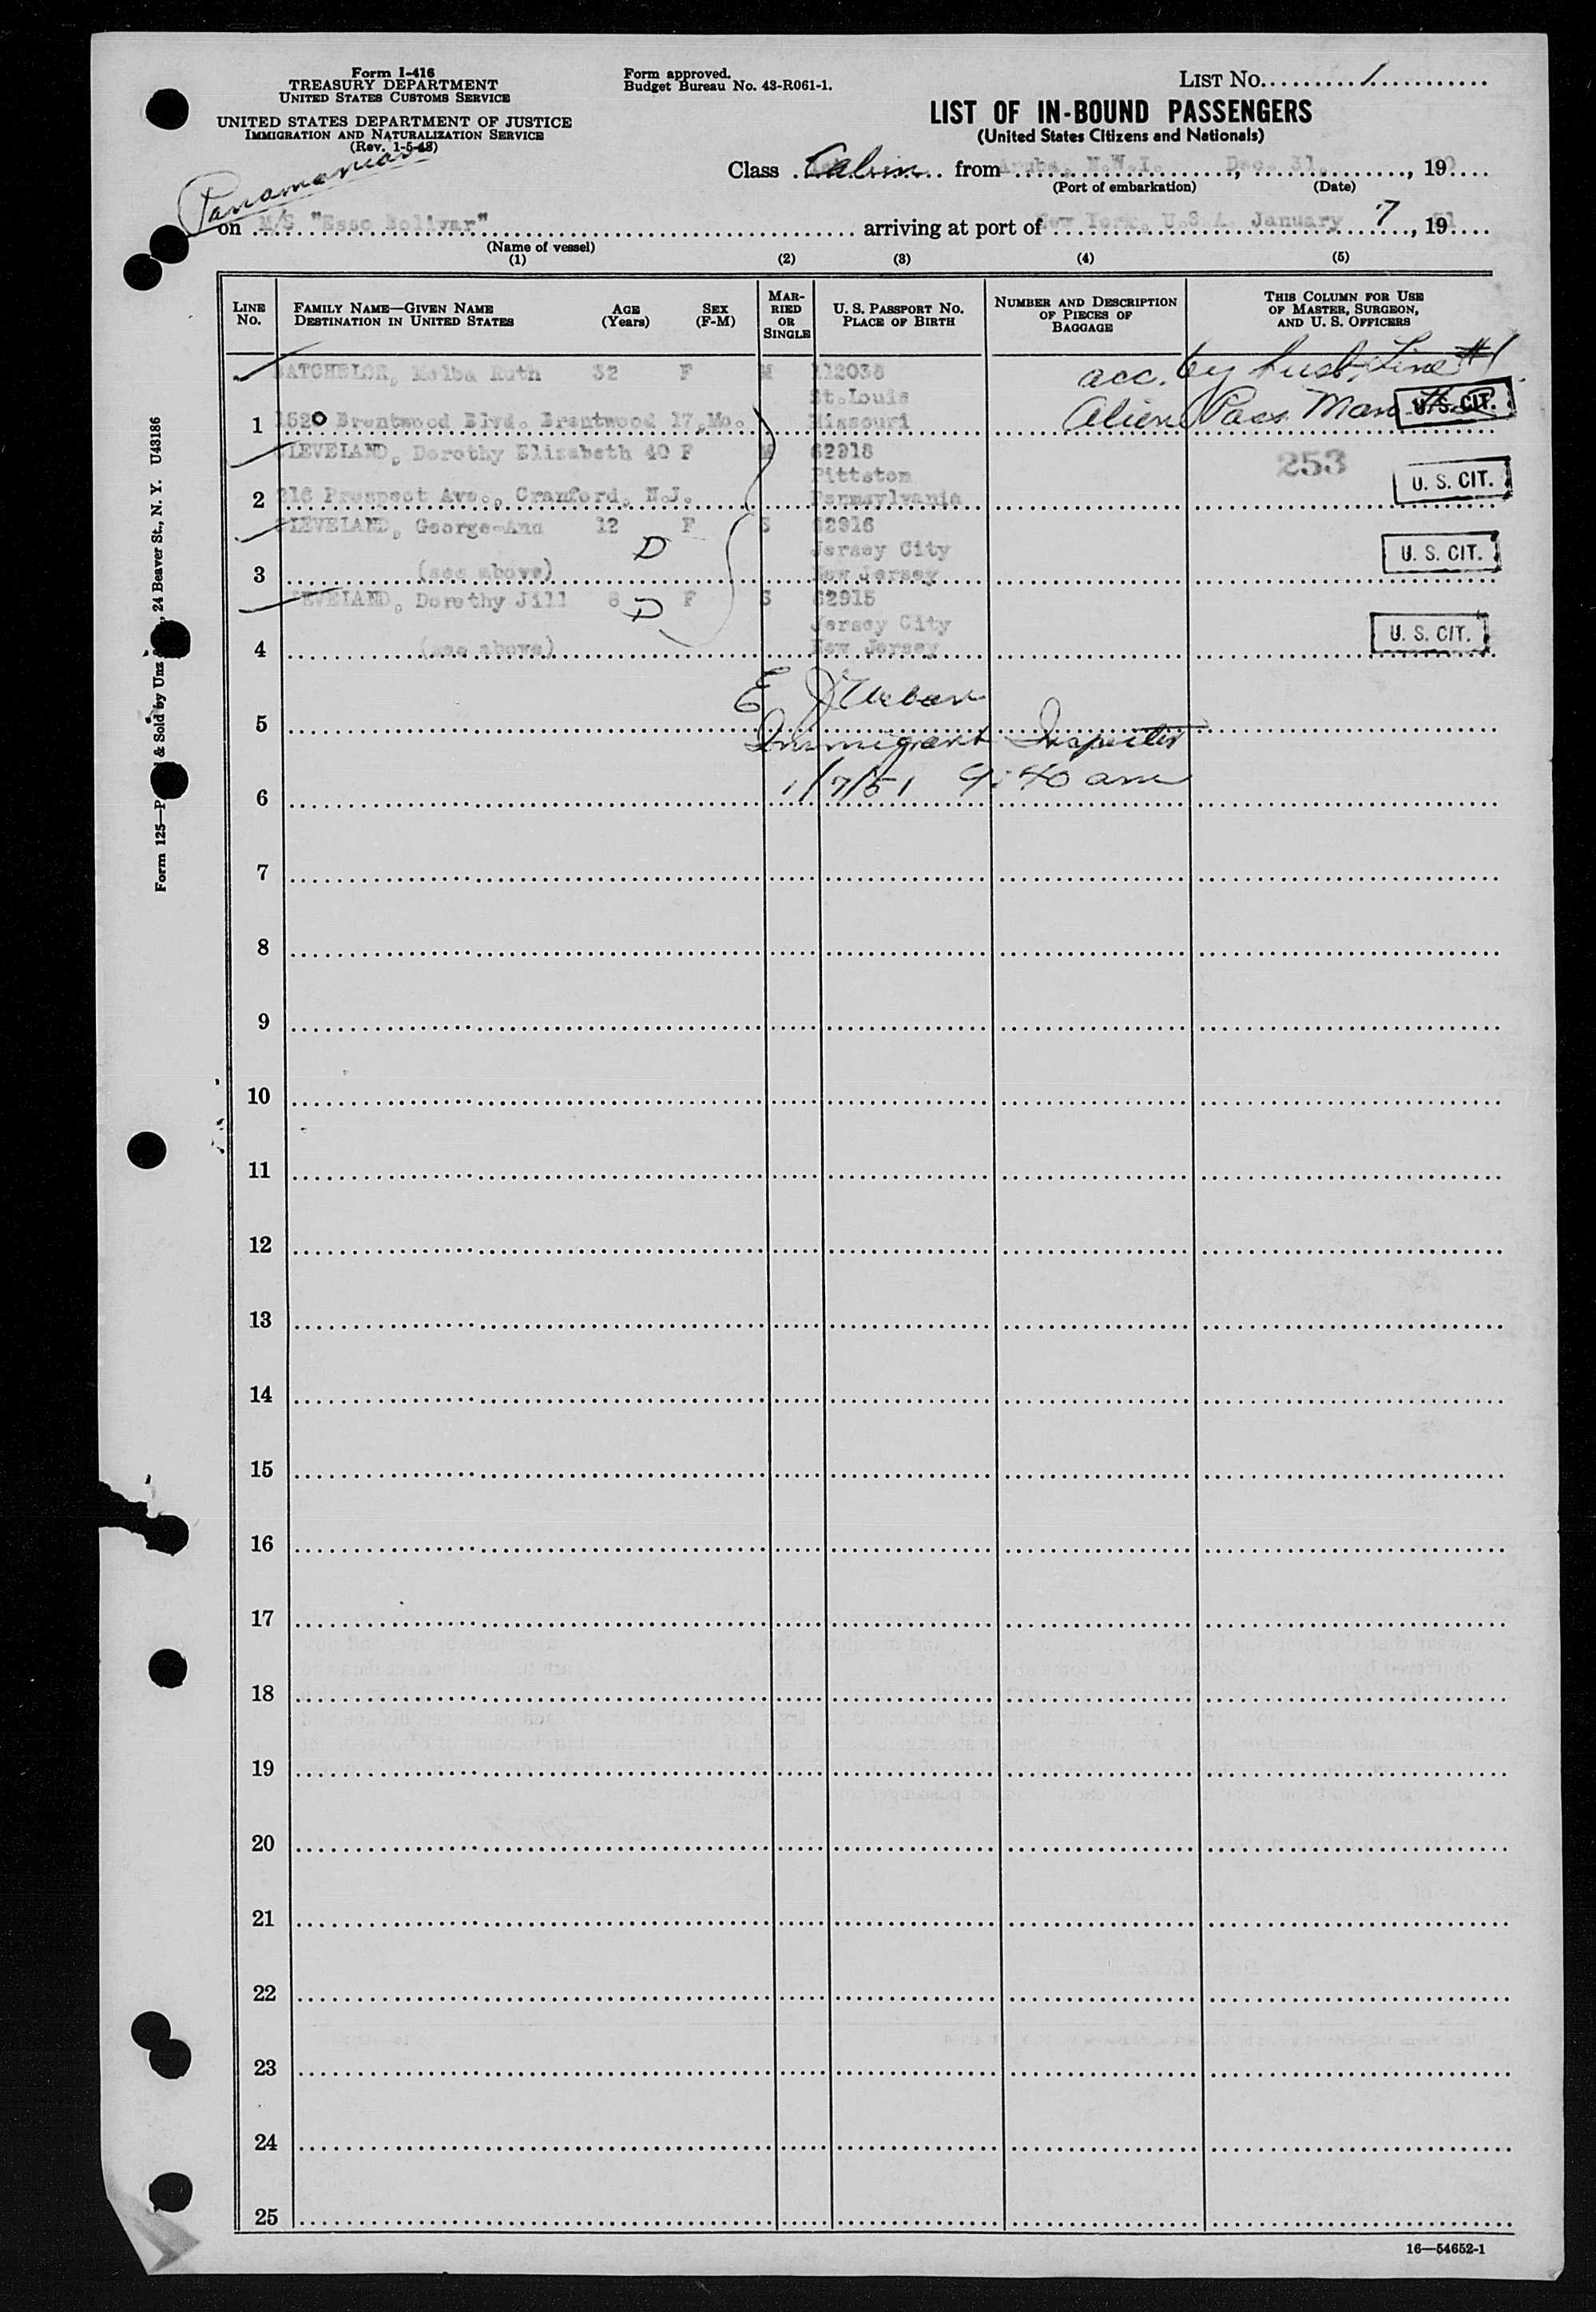 Form I-416
TREASURY DEPARTMENT
UNITED STATES CUSTOMS SERVICE
UNITED STATES DEPARTMENT OF JUSTICE
IMMIGRATION AND NATURALIZATION SERVICE
(Rev. 1-5-48)
Form approved.
Budget Bureau No. 43-R061-1.
LIST No. 1
LIST OF IN-BOUND PASSENGERS
(United States Citizens and Nationals)
Panamanian
Class Cabin from Aruba, N.W.I. , Dec. 31, , 19 0
(Port of embarkation) (Date)
on M/S "Esso Bolivar" arriving at port of New York, U.S.A. January 7 , 19 51
(Name of vessel)
(1) (2) (3) (4) (5)
LINE No. FAMILY NAME—GIVEN NAME DESTINATION IN UNITED STATES AGE (Years) SEX (F-M) MARRIED OR SINGLE U. S. PASSPORT NO. PLACE OF BIRTH NUMBER AND DESCRIPTION OF PIECES OF BAGGAGE THIS COLUMN FOR USE OF MASTER, SURGEON, AND U. S. OFFICERS
BATCHELOR, Melba Ruth 32 F M 112038 acc. by husb. Line #1
St.Louis
1 1520 Brentwood Blvd. Brentwood 17, Mo. Missouri Alien Pass. Man U. S. CIT.
CLEVELAND, Dorothy Elizabeth 40 F M 62918 253
Pittston
2 216 Prospect Ave., Cranford, N.J. Pennsylvania U. S. CIT.
CLEVELAND, George-Ann 12 F S 62916
D Jersey City U. S. CIT.
3 (see above) New Jersey
CLEVELAND, Dorothy Jill 8 F S 62915
D Jersey City U. S. CIT.
4 (see above) New Jersey
E J Urban
5 Immigrant Inspector
6 1/7/51 9:40 am
7
8
9
10
11
12
13
14
15
16
17
18
19
20
21
22
23
24
25
16—54652-1
Form 125—P & Sold by Unz , 24 Beaver St., N. Y. U43186